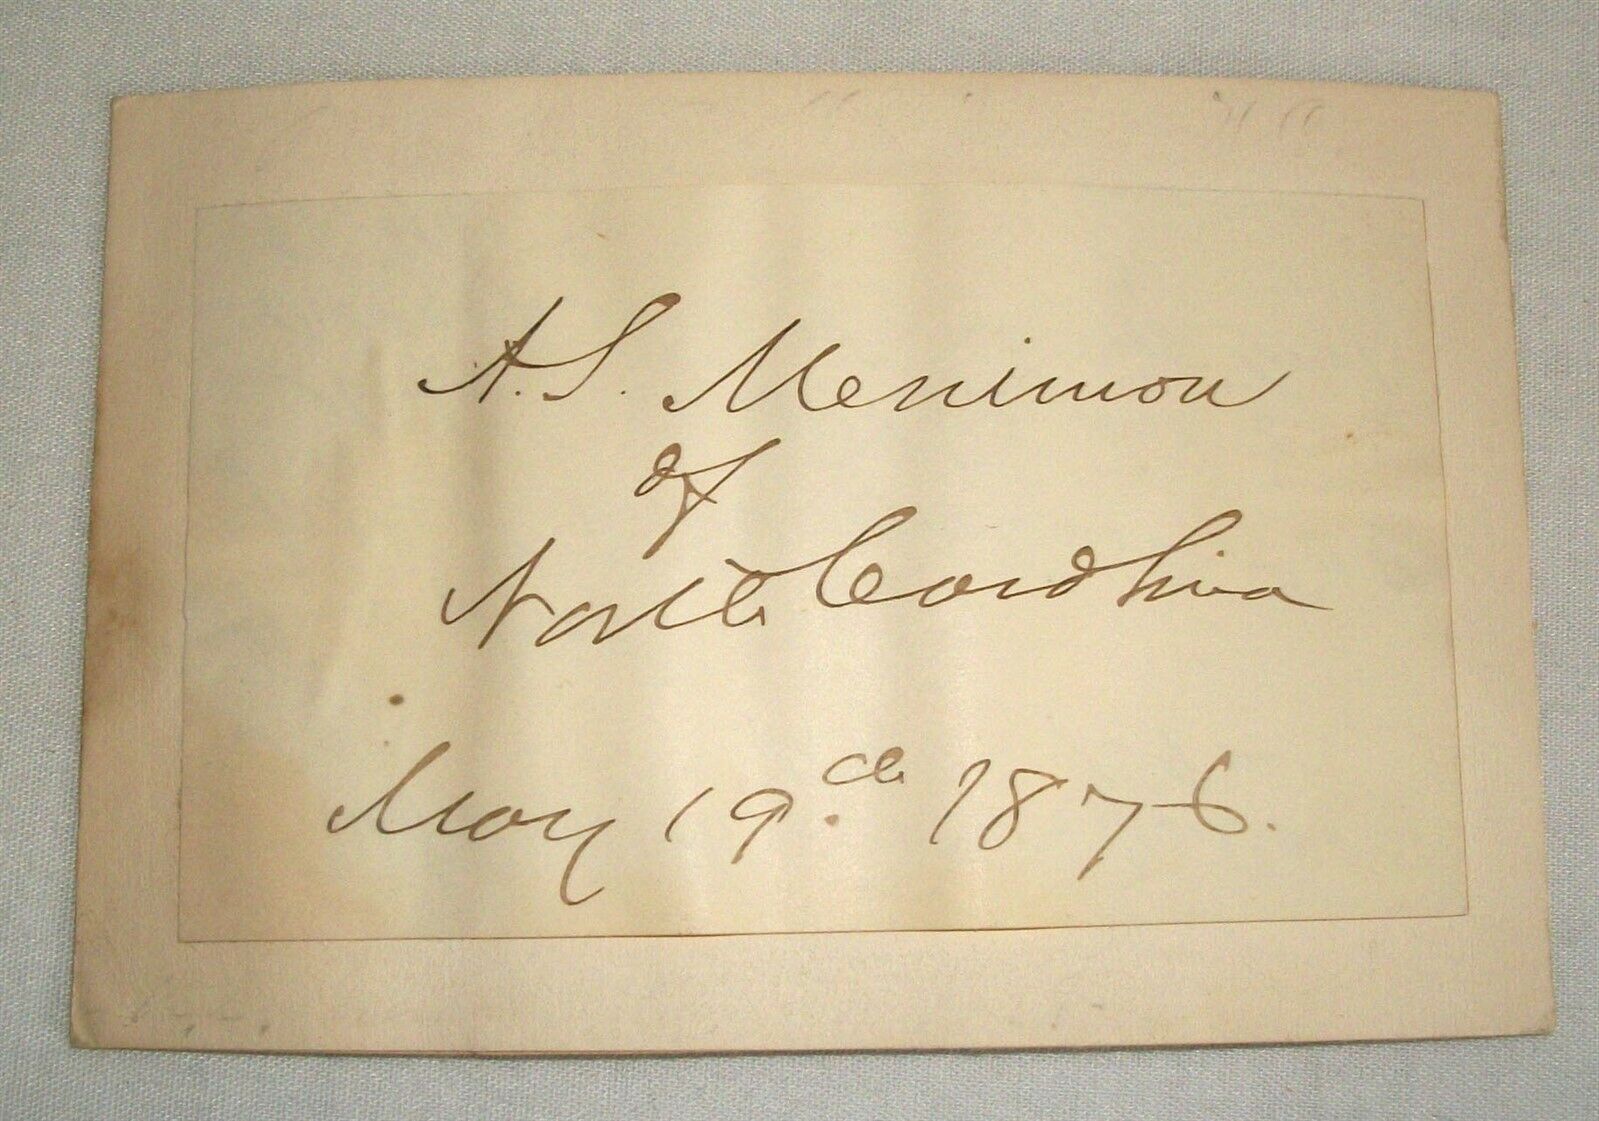 A. S. Merrimon
of
North Carolina
May 19th 1876.